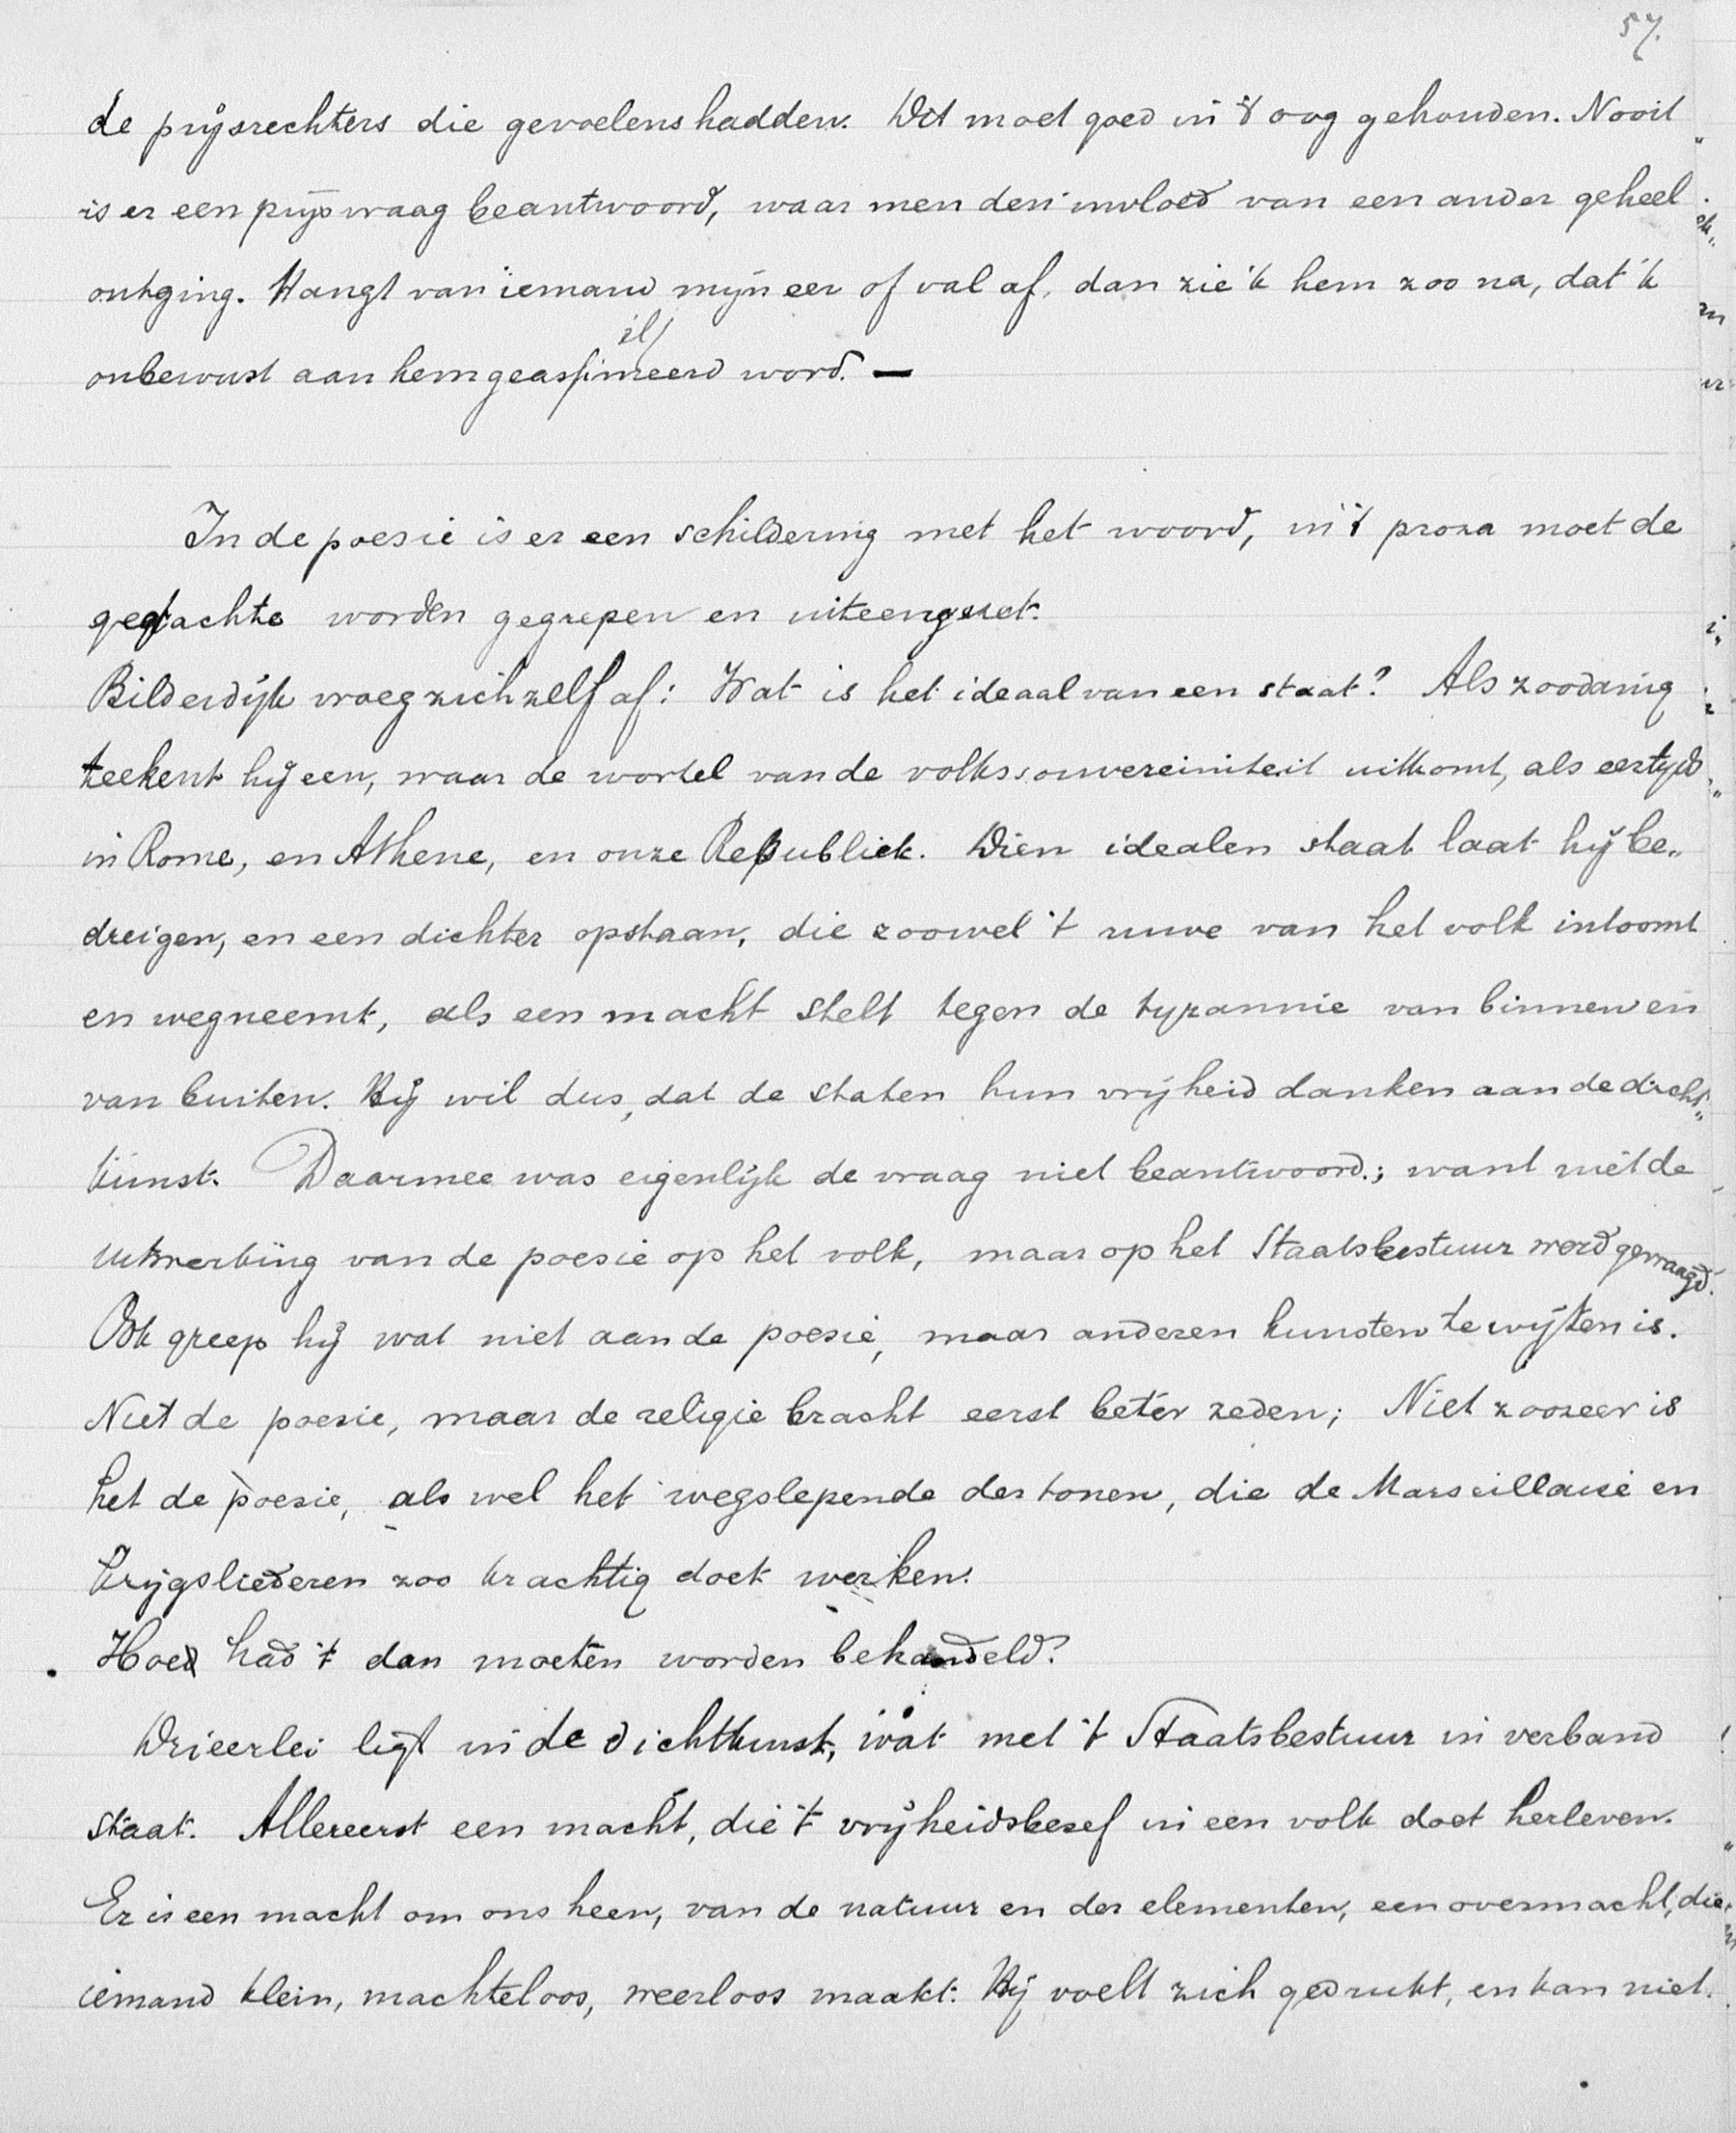 57.
de prijsrechters die gevoelens hadden. Dit moet goed in 't oog gehouden. Nooit
is er een prijsvraag beantwoord, waar men den invloed van een ander geheel
ontging. Hangt van iemand mijn eer of val af, dan zie 'k hem zoo na, dat 'k
il
onbewust aan hem geassimeerd word. —
In de poesie is er een schildering met het woord, in 't proza moet de
gedachte worden gegrepen en uiteengezet.
Bilderdijk vroeg zichzelf af: Wat is het ideaal van een staat? Als zoodanig
teekent hij een, waar de wortel van de volkssouvereiniteit uitkomt, als eertijds
in Rome, en Athene, en onze Republiek. Dien idealen staat laat hij be„
dreigen, en een dichter opstaan, die zoowel 't ruwe van het volk intoomt
en wegneemt, als een macht stelt tegen de tyrannie van binnen en
van buiten. Hij wil dus, dat de staten hun vrijheid danken aan de dicht„
kunst. Daarmee was eigenlijk de vraag niet beantwoord.; want niet de
uitwerking van de poesie op het volk, maar op het Staatsbestuur werd gevraagd.
Ook greep hij wat niet aan de poesie, maar anderen kunsten te wijten is.
Niet de poesie, maar de religie bracht eerst beter zeden; Niet zoozeer is
het de poesie, als wel het wegslepende der tonen, die de Marseillaise en
krijgsliederen zoo krachtig doet werken.
Hoe had 't dan moeten worden behandeld?
Drieerlei ligt in de dichtkunst, wat met 't Staatsbestuur in verband
staat. Allereerst een macht, die 't vrijheidsbesef in een volk doet herleven.
Er is een macht om ons heen, van de natuur en der elementen, een overmacht, die
iemand klein, machteloos, weerloos maakt. Hij voelt zich gedrukt, en kan niet.